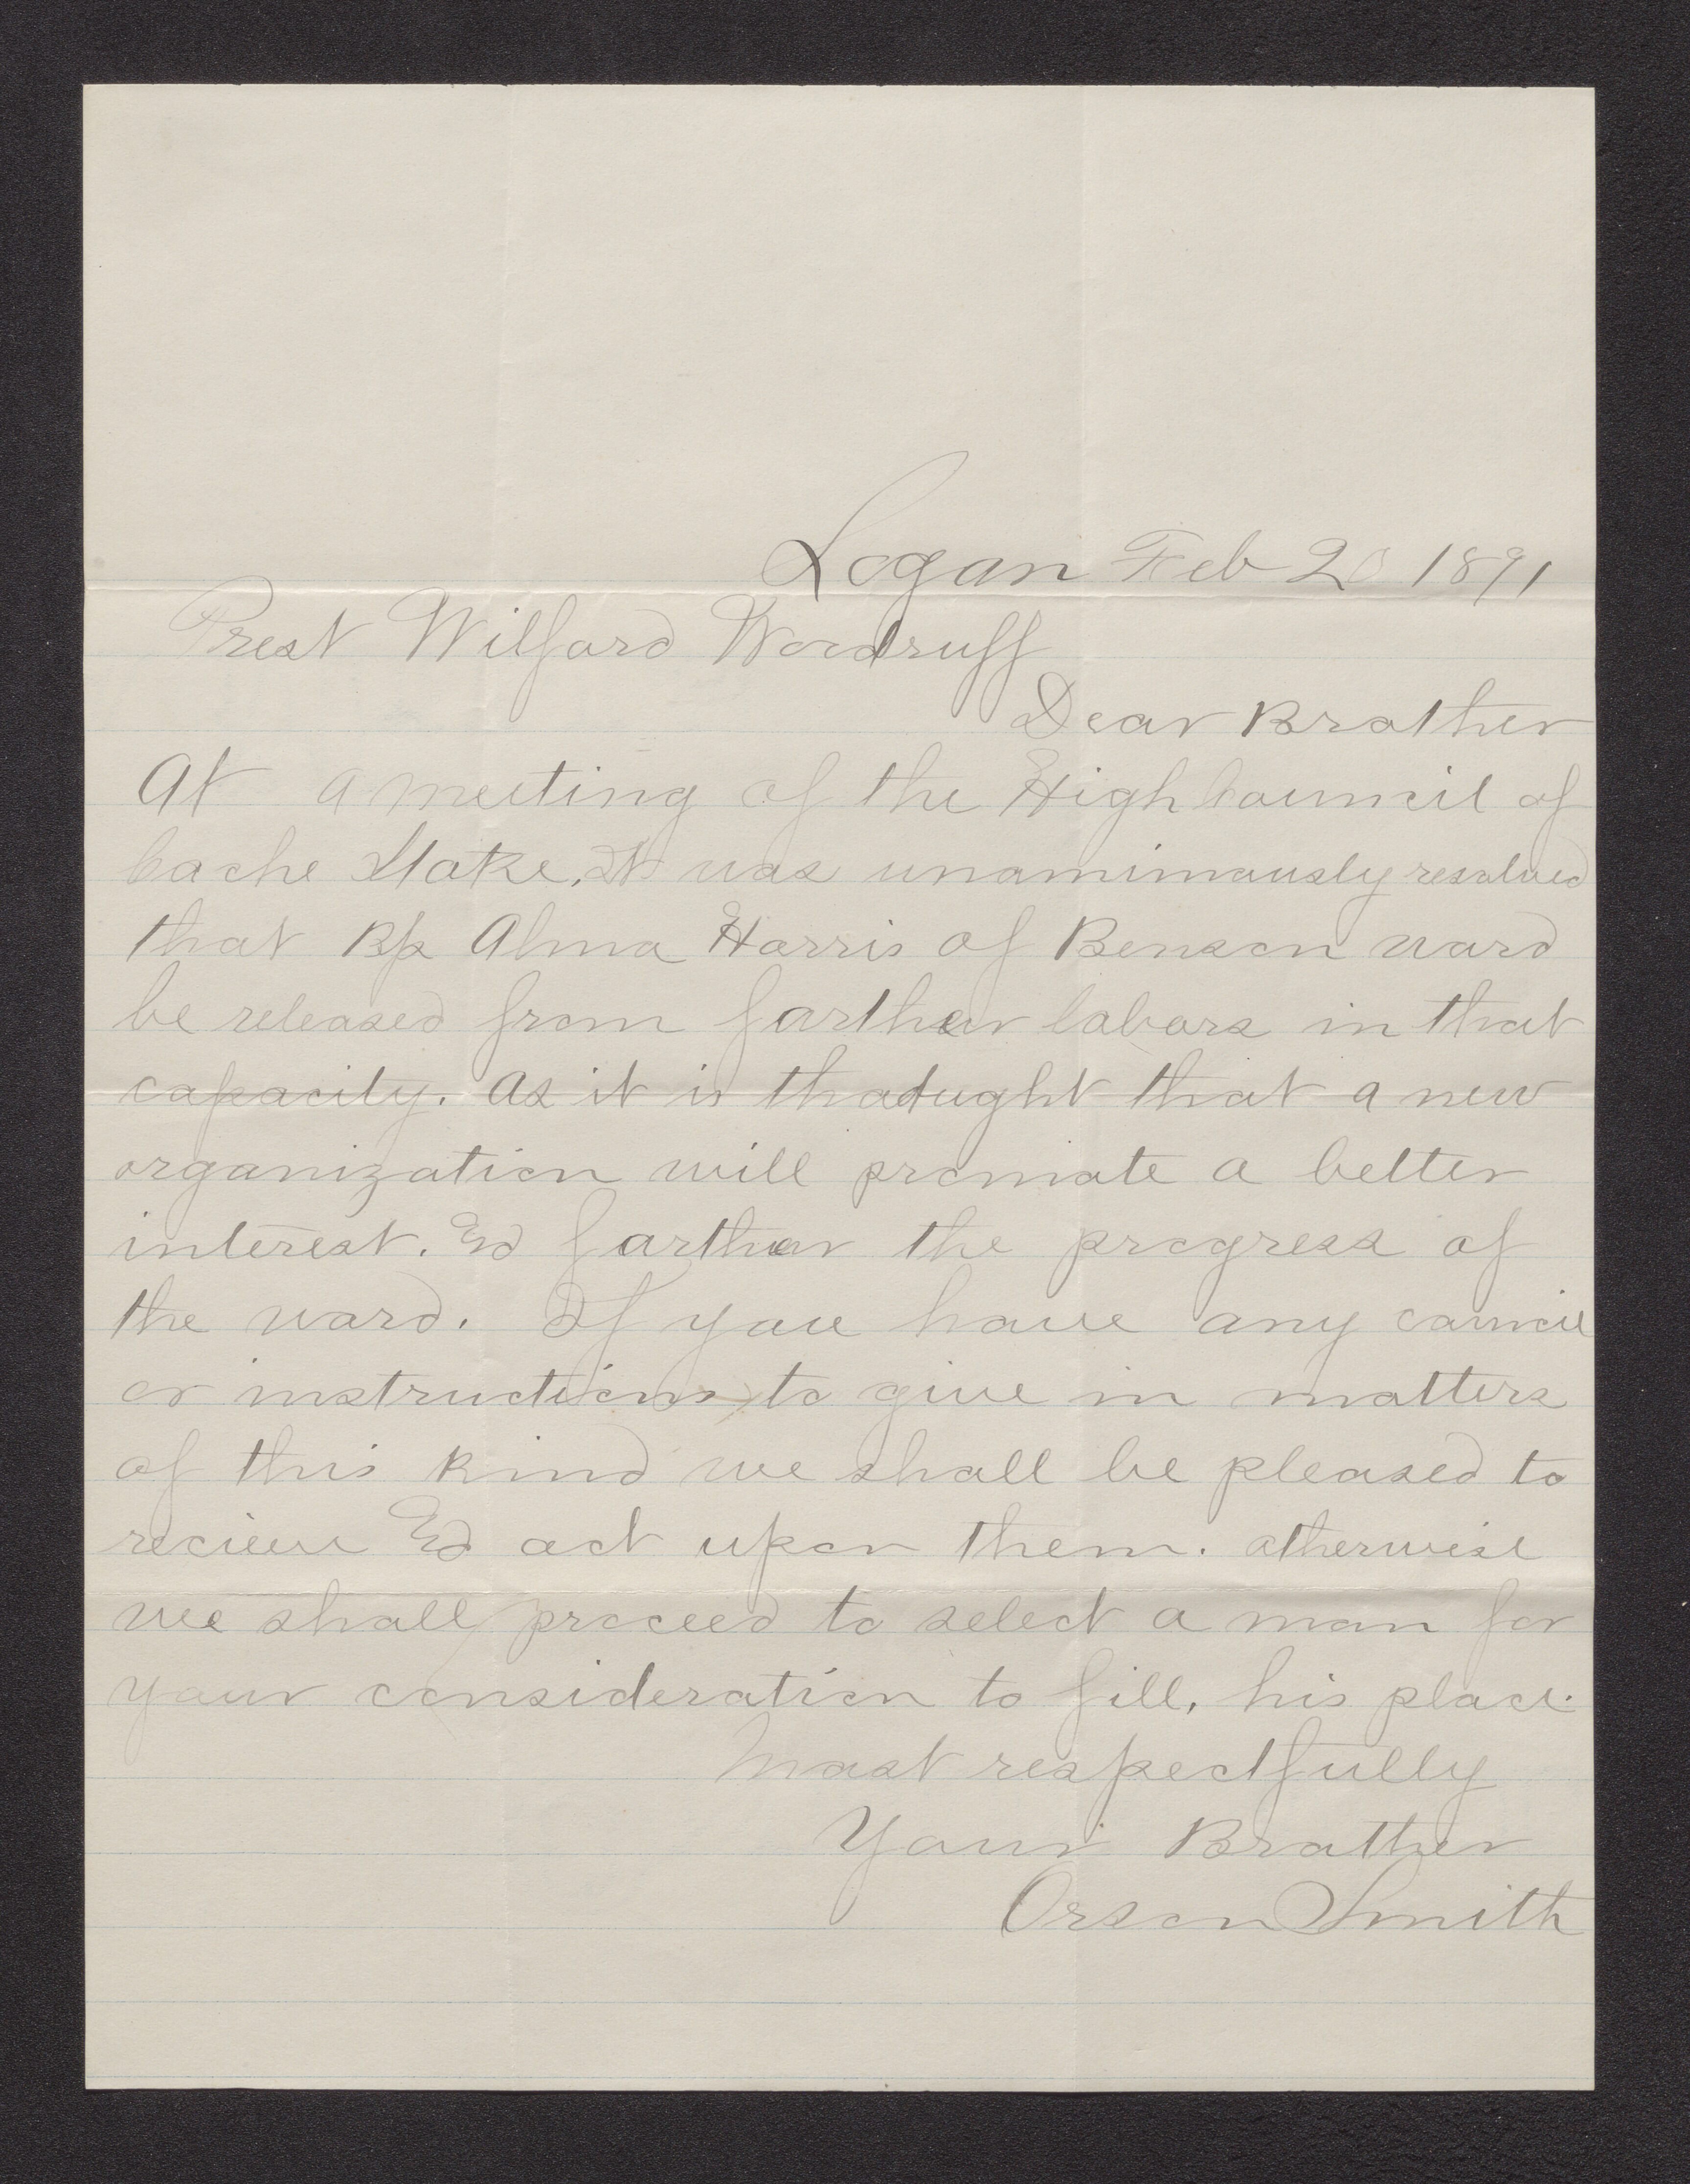 Logan Feb 20 1891
Prest Wilford Woodruff
Dear Brother
At a meeting of the High Council of
Cache Stake, It was unamimously resolved
that Bp Alma Harris of Benson ward
be released from farther labors in that
capacity. As it is thought that a new
organization will promote a better
interest. & farther the progress of
the ward. If you have any councie
or instructions to give in matters
of this kind we shall be pleased to
recieve & act upon them. otherwise
we shall proceed to select a man for
your consideration to fill, his place.
Most respectfully
Your Brother
Orson Smith